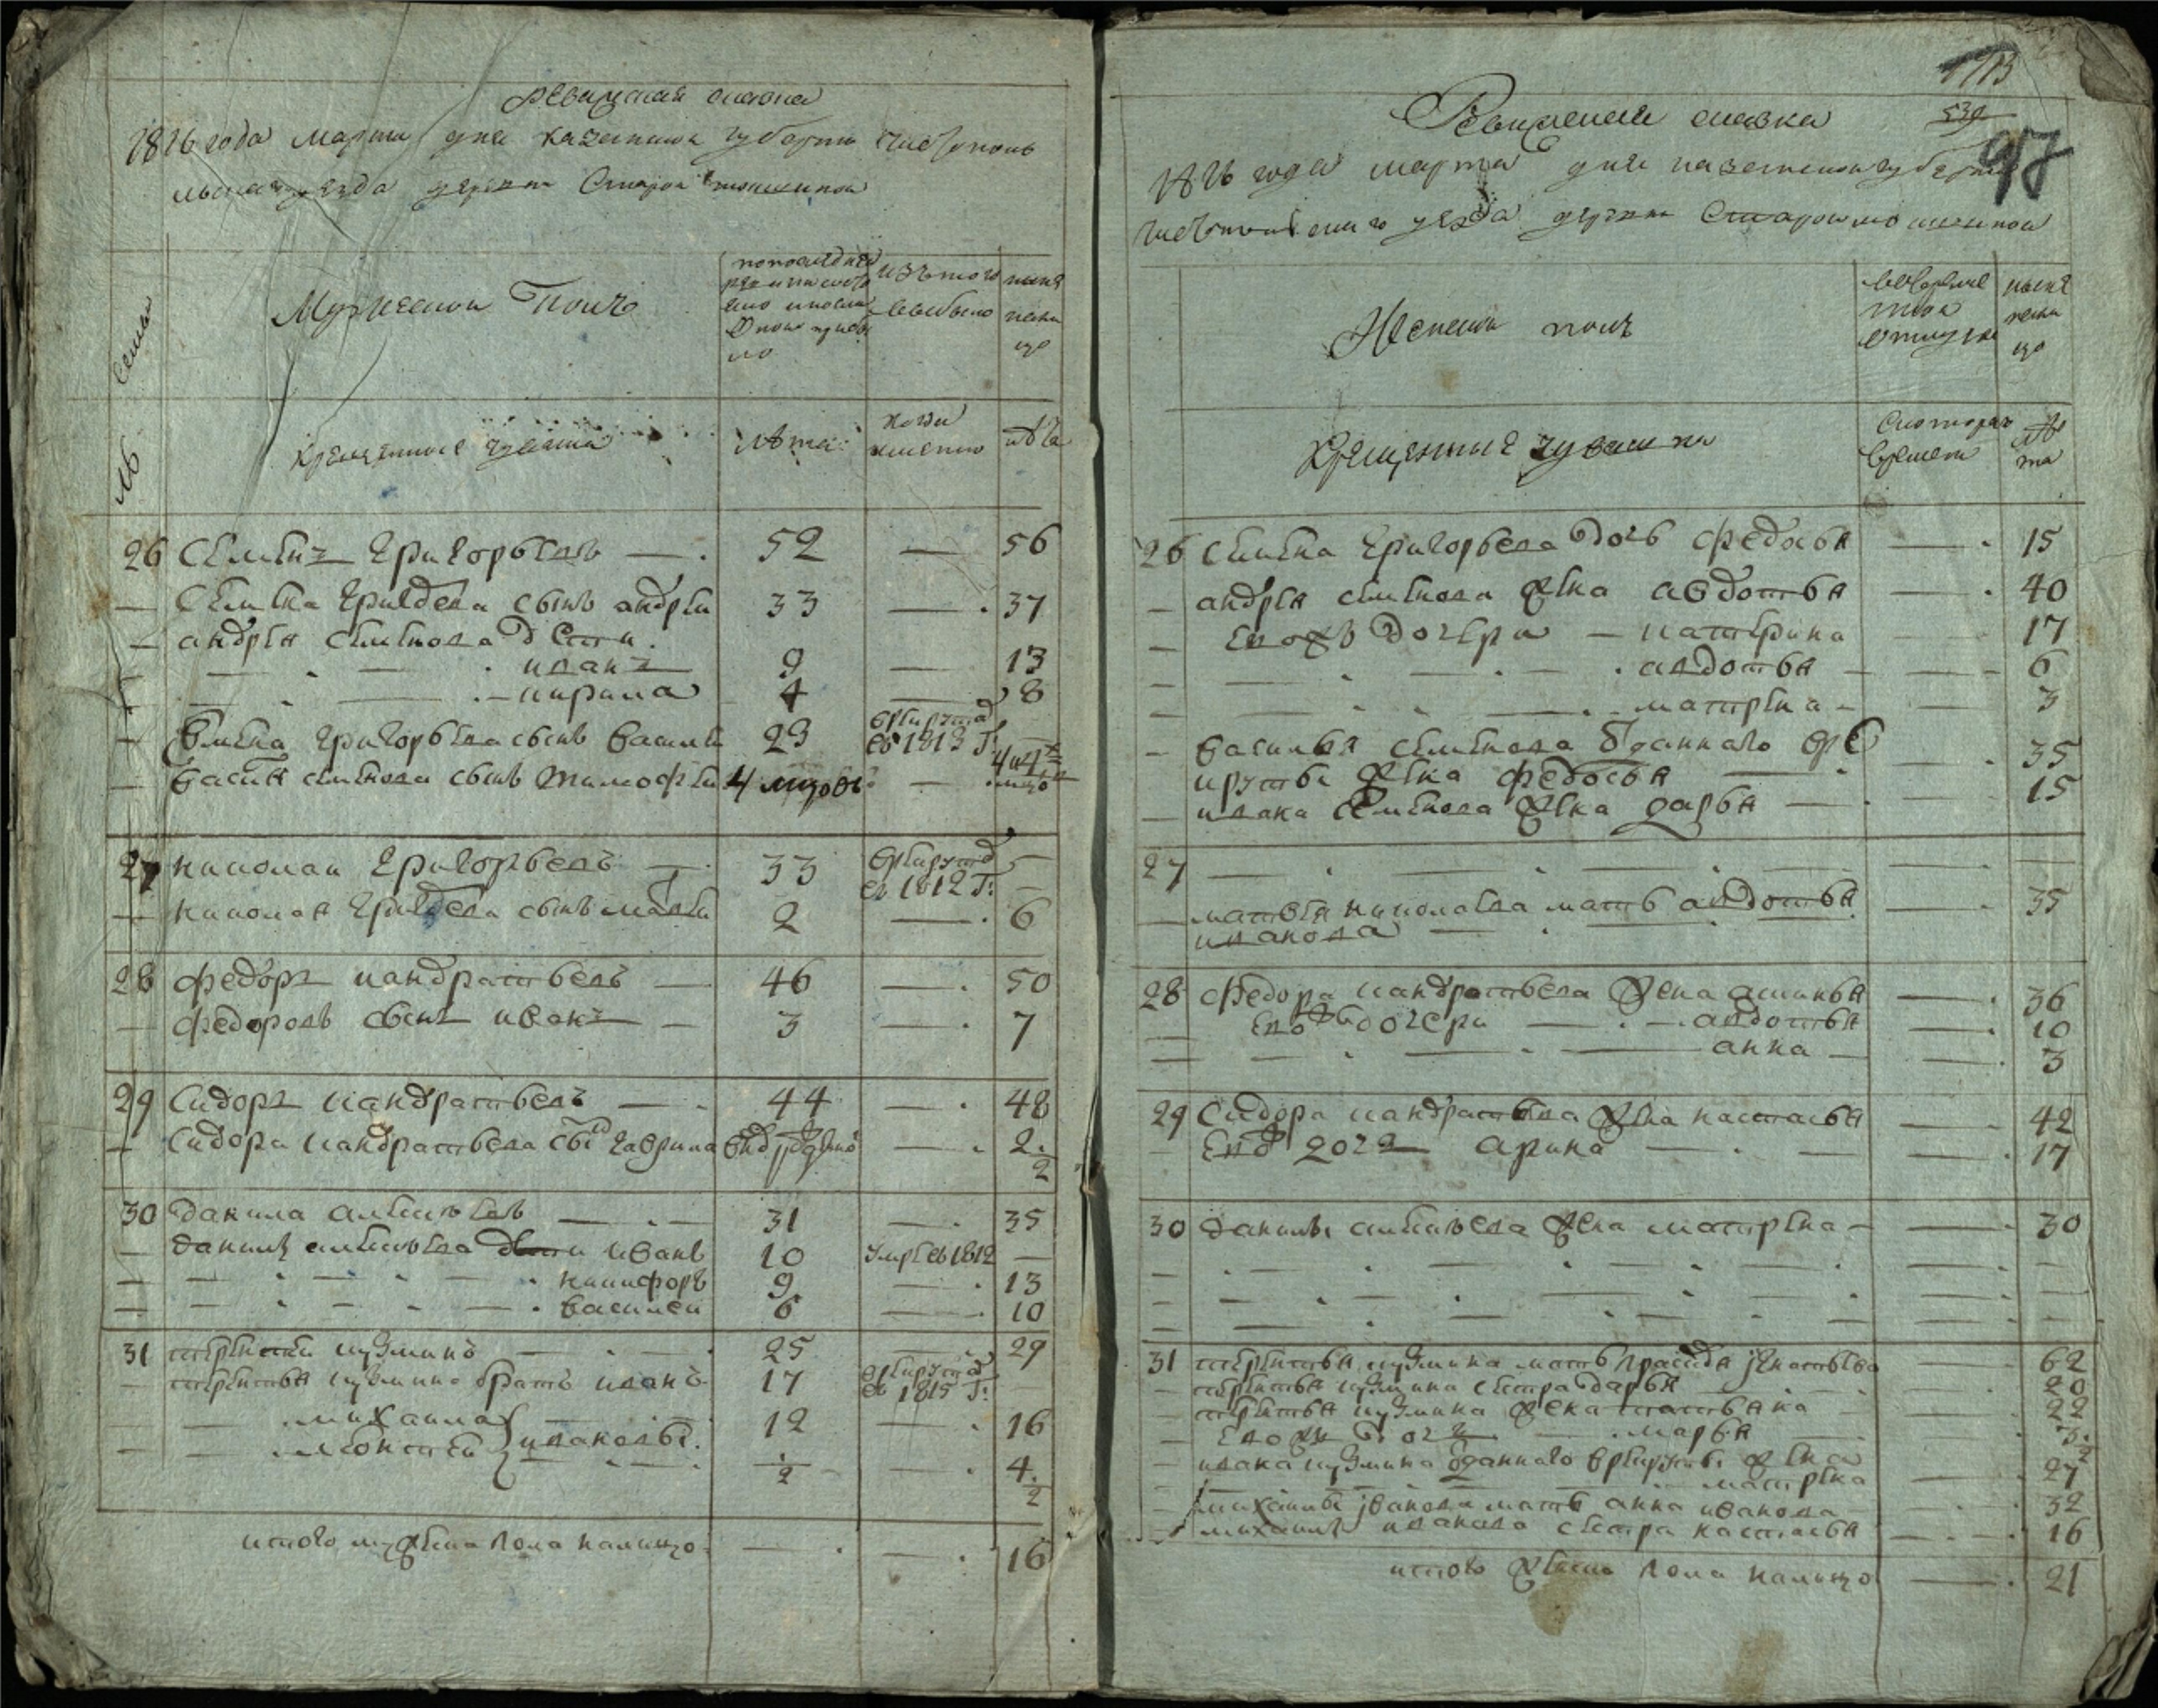 Ревизская сказка
1816 года марта дня казанской губернии чистополь
скаго уезда деревни Старой
Семьи
Мужескои Полъ
по последней ревизии состояло и после оной прибыло
изъ того выбыло
ныне на лицо
№
крещенные чуваша
лета
когда имянно
лета
26 Семенъ Григорьевъ — 52 — 56
— Семена Григорьева сынъ андреи 33 — 37
— андрея семенова дети
иванъ 9 — 13
кирила 4 — 8
— Семена Григорьева сынъ василеи 23 в рекруты въ 1813 г:
— василья семенова сынъ тимофеи 4 месяцовъ — 4
27 николаи Григорьевъ — 33 в рекруты въ 1812 г: —
— николая Григорьева сынъ матвеи 2 — 6
28 федоръ кандратьевъ — 46 — 50
— федоровъ сынъ иванъ — 3 — 7
29 Сидоръ кандратьевъ — 44 — 48
— Сидора кандратьева сынъ гаврила — 2 1/2
30 данила алексеевъ — 31 — 35
— данилы алексеева дети иванъ 10 умре въ 1812 —
никифоръ 9 — 13
василеи 6 — 10
31 терентеи кузминъ — 25 — 29
— терентья кузмина братъ иванъ 17 в рекруты въ 1815 г: —
— михаила } ивановы 12 — 16
— } 1/2 — 4 1/2
итого мужеска пола налицо — 16
113
539
97
Ревизская сказка
1816 года марта дня казанской губернии
чистопольского уезда деревни Старой
Женской полъ
во временной отлучке
ныне на лицо
Крещенные чуваши
С которого времени
лета
26 Семена Григорьева дочь федосья — 15
— андрея семенова жена авдотья — 40
— ево жъ дочери — катерина 17
— авдотья — 6
— матрена — 3
— василья семенова отданнаго в ре
круты жена федосья — 35
— ивана семенова жена дарья — 15
27 — —
— матвея николаева мать авдотья 35
иванова —
28 федора кандратьева жена акилина — 36
ево жъ дочери — авдотья — 10
— анна — 3
29 Сидора кандратьева жена настасья — 42
ево дочь арина — 17
30 данилы алексеева жена матрена — 30
31 терентья кузмина мать — 62
— терентья кузмина сестра дарья 20
— терентья кузмина жена татьяна 22
— ево жъ дочь — марья 3 1/2
— ивана кузмина отданнаго в рекруты жена
матрена 27
— михаилы иванова мать анна иванова 32
— михаилы иванова сестра настасья 16
итого женска пола налицо — 21